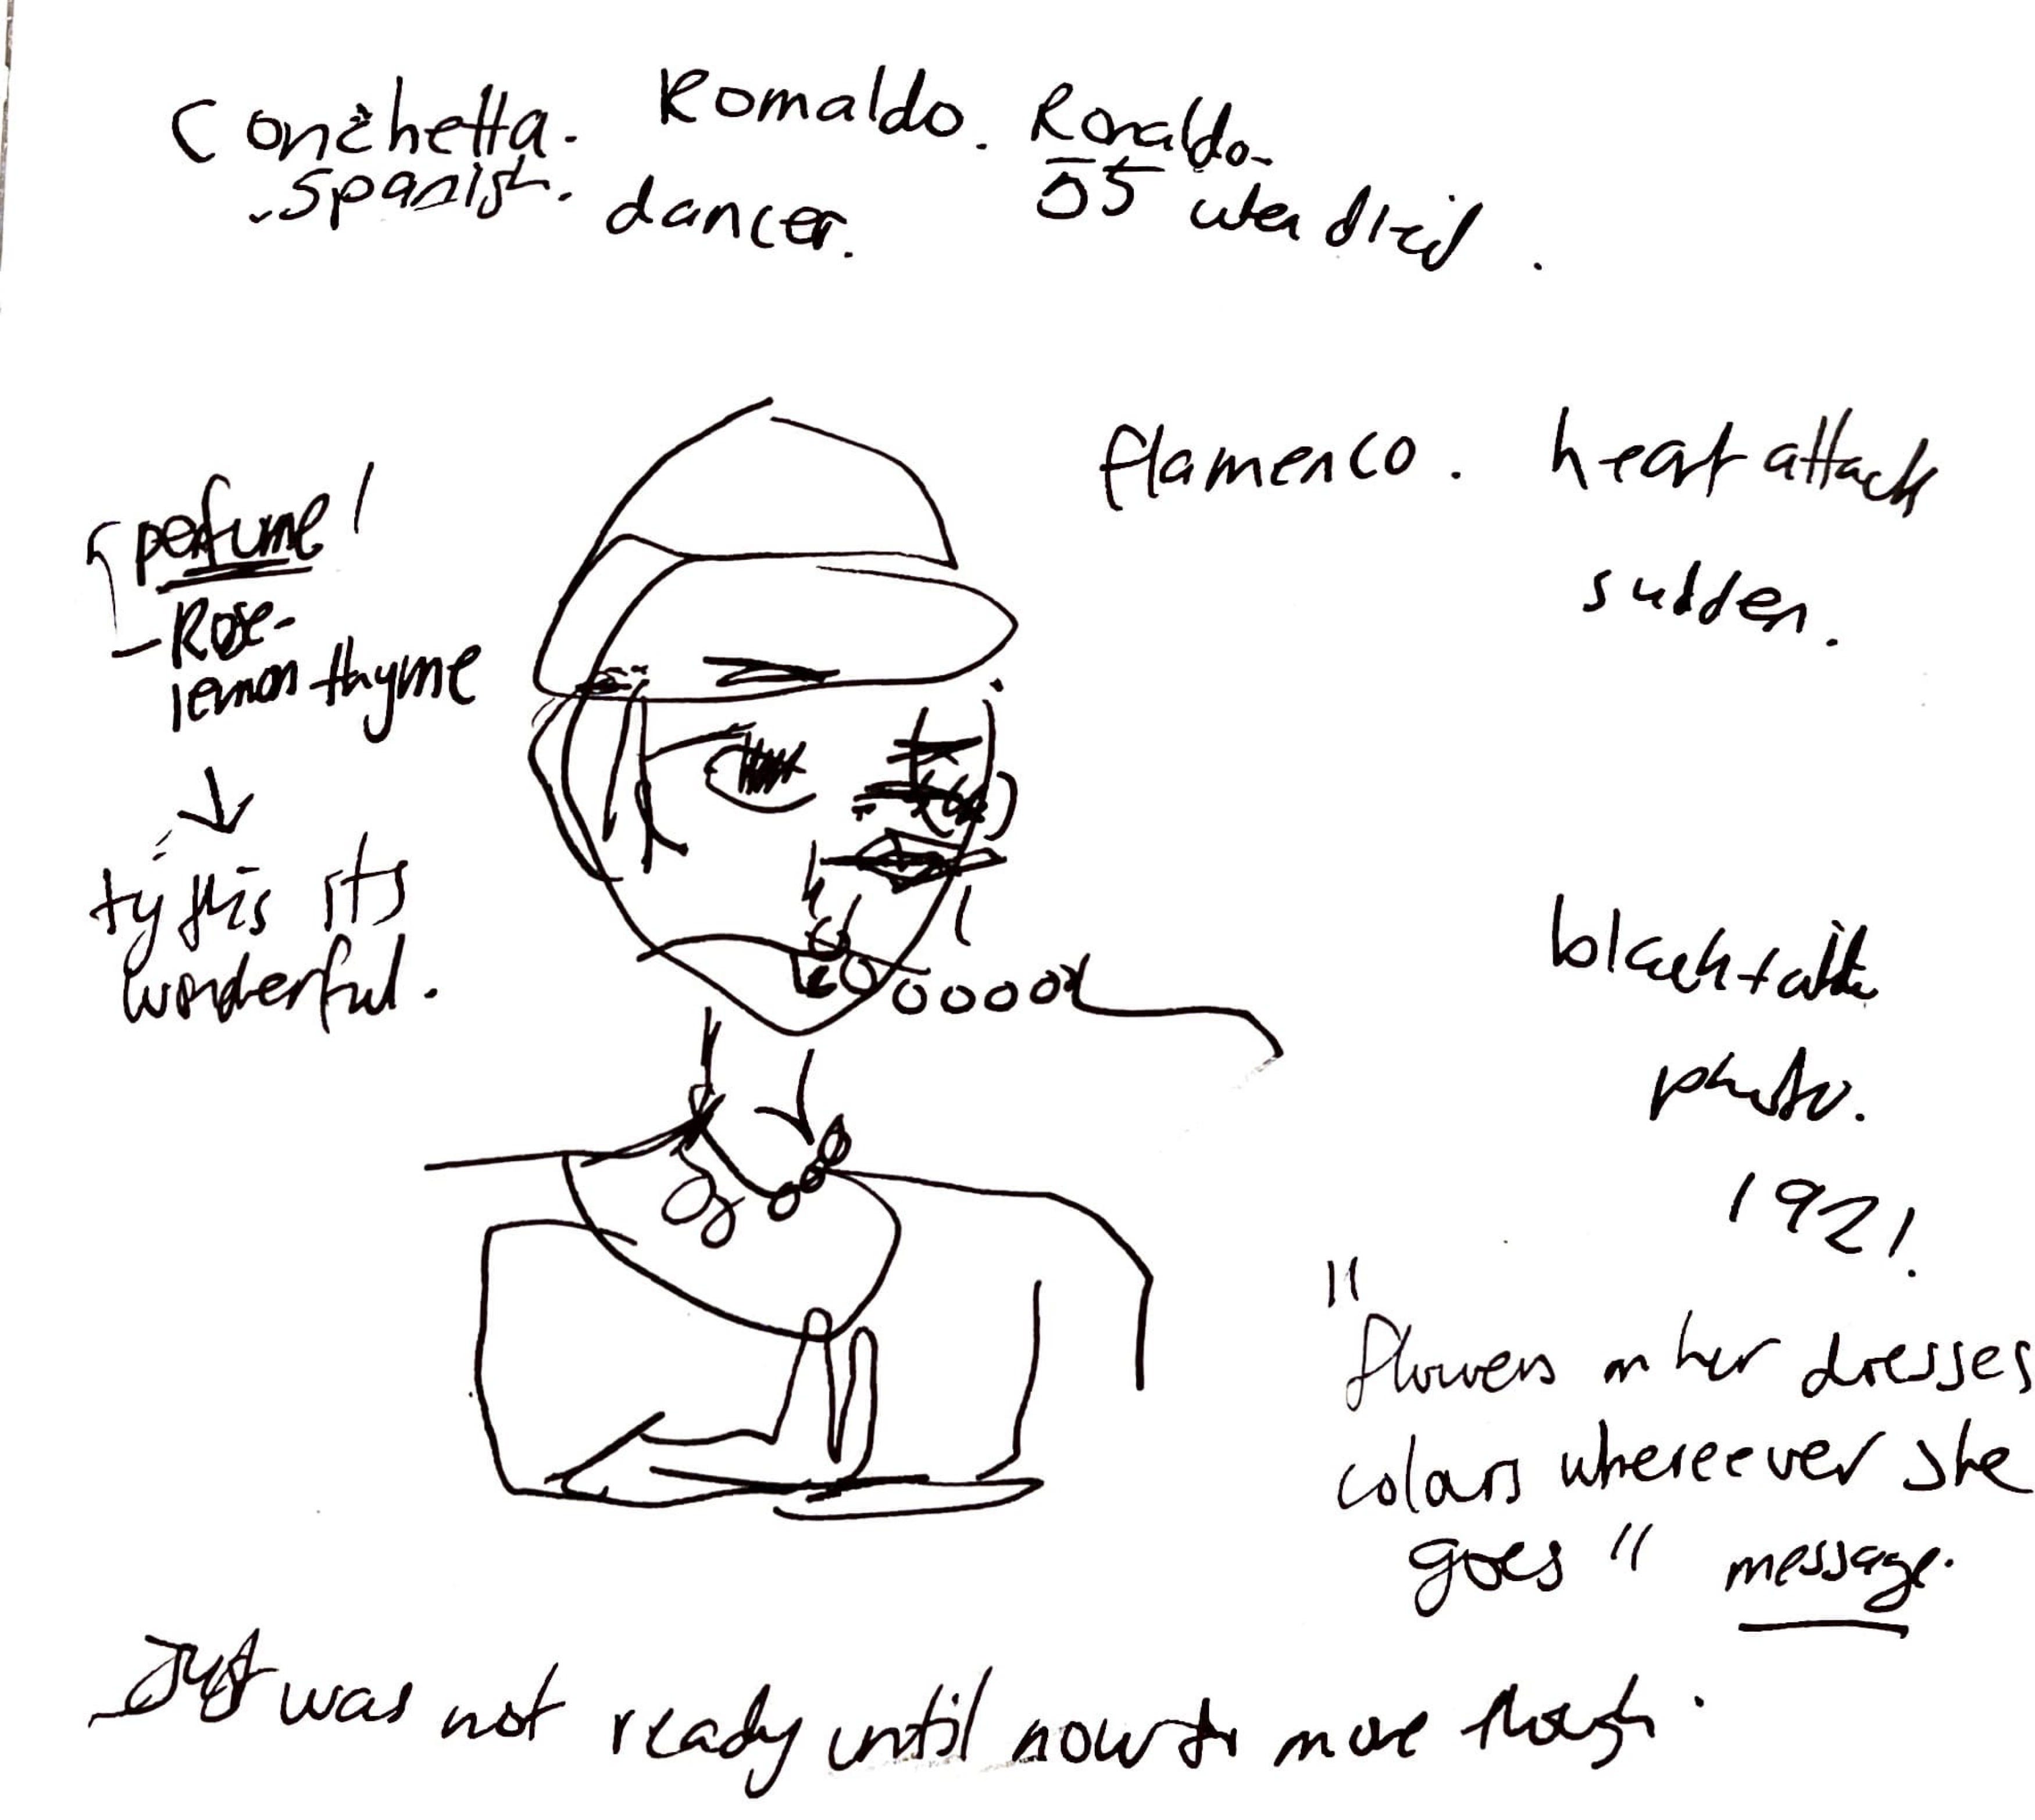 Conchetta. Romaldo. Ronaldo.
- Spanish. dancer. 55 when died.
flamenco. heart attack
sudden.
perfume!
- Rose-
lemon thyme
try this its
wonderful.
photo.
1921.
"flowers on her dresses
colours whereever she
goes" message.
Just was not ready until now to move though.